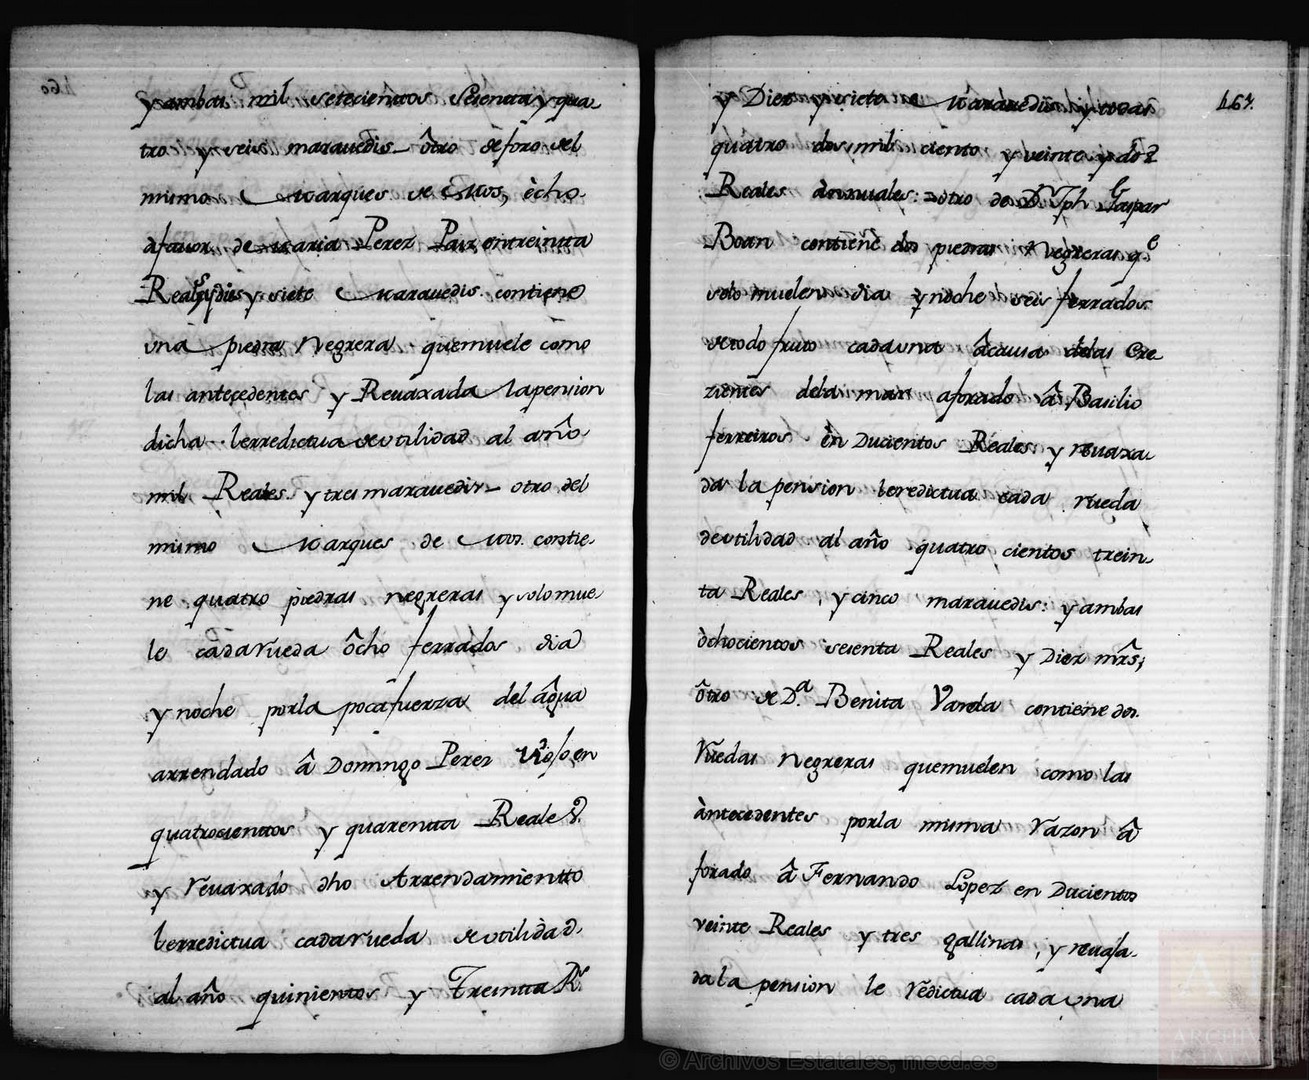 y ambas mil setecientos Sesenta y qua
tro y seis maravedis ôtro de foro del
mismo Marques de Mos, ècho
a favor de Maria Perez Paix en treinta
Reals y dies y siete Maravedis contiene
una piedra Negrera que muele como
las antecedentes y Revaxada la pension
dicha le rredictua de utilidad al año
mil Reales y tres maravedis otro del
mismo Marques de Mos contie
ne quatro piedras negreras y solo mue
le cada rueda ôcho ferrados dia
y noche por la poca fuerza del âgua
arrendado â Domingo Perez en
quatrocientos y quarenta Reales
y revaxado dho Arrendamientto
le rredictua cada rueda de utilidad
al año quinientos y Treintta Rs
461.
y Diez y siete Maravedis y todas
quâtro dos mil ciento y veinte y dos
Reales ànnuales: otro de Dn Jph Gaspar
Boan contiene dos piedras Negreras qe
solo muelen dia y noche seis ferrados
de todo fruto cada una â causa de las Cre
zientes de la mar aforado â Basilio
ferreiros en Ducientos Reales y revaxa
da la pension le redictua cada rueda
de utilidad al año quatro cientos trein
ta Reales, y cinco maravedis: y ambas
òchocientos sesenta Reales y Diez mrs;
ôtro de Da. Benita Varela contiene dos
Ruedas negreras que muelen como las
àntecedentes por la misma razon â
forado â Fernando Lopez en Ducientos
veinte Reales y tres gallinas, y revaja
da la pension le redictua cada una
© Archivos Estatales, mecd.es